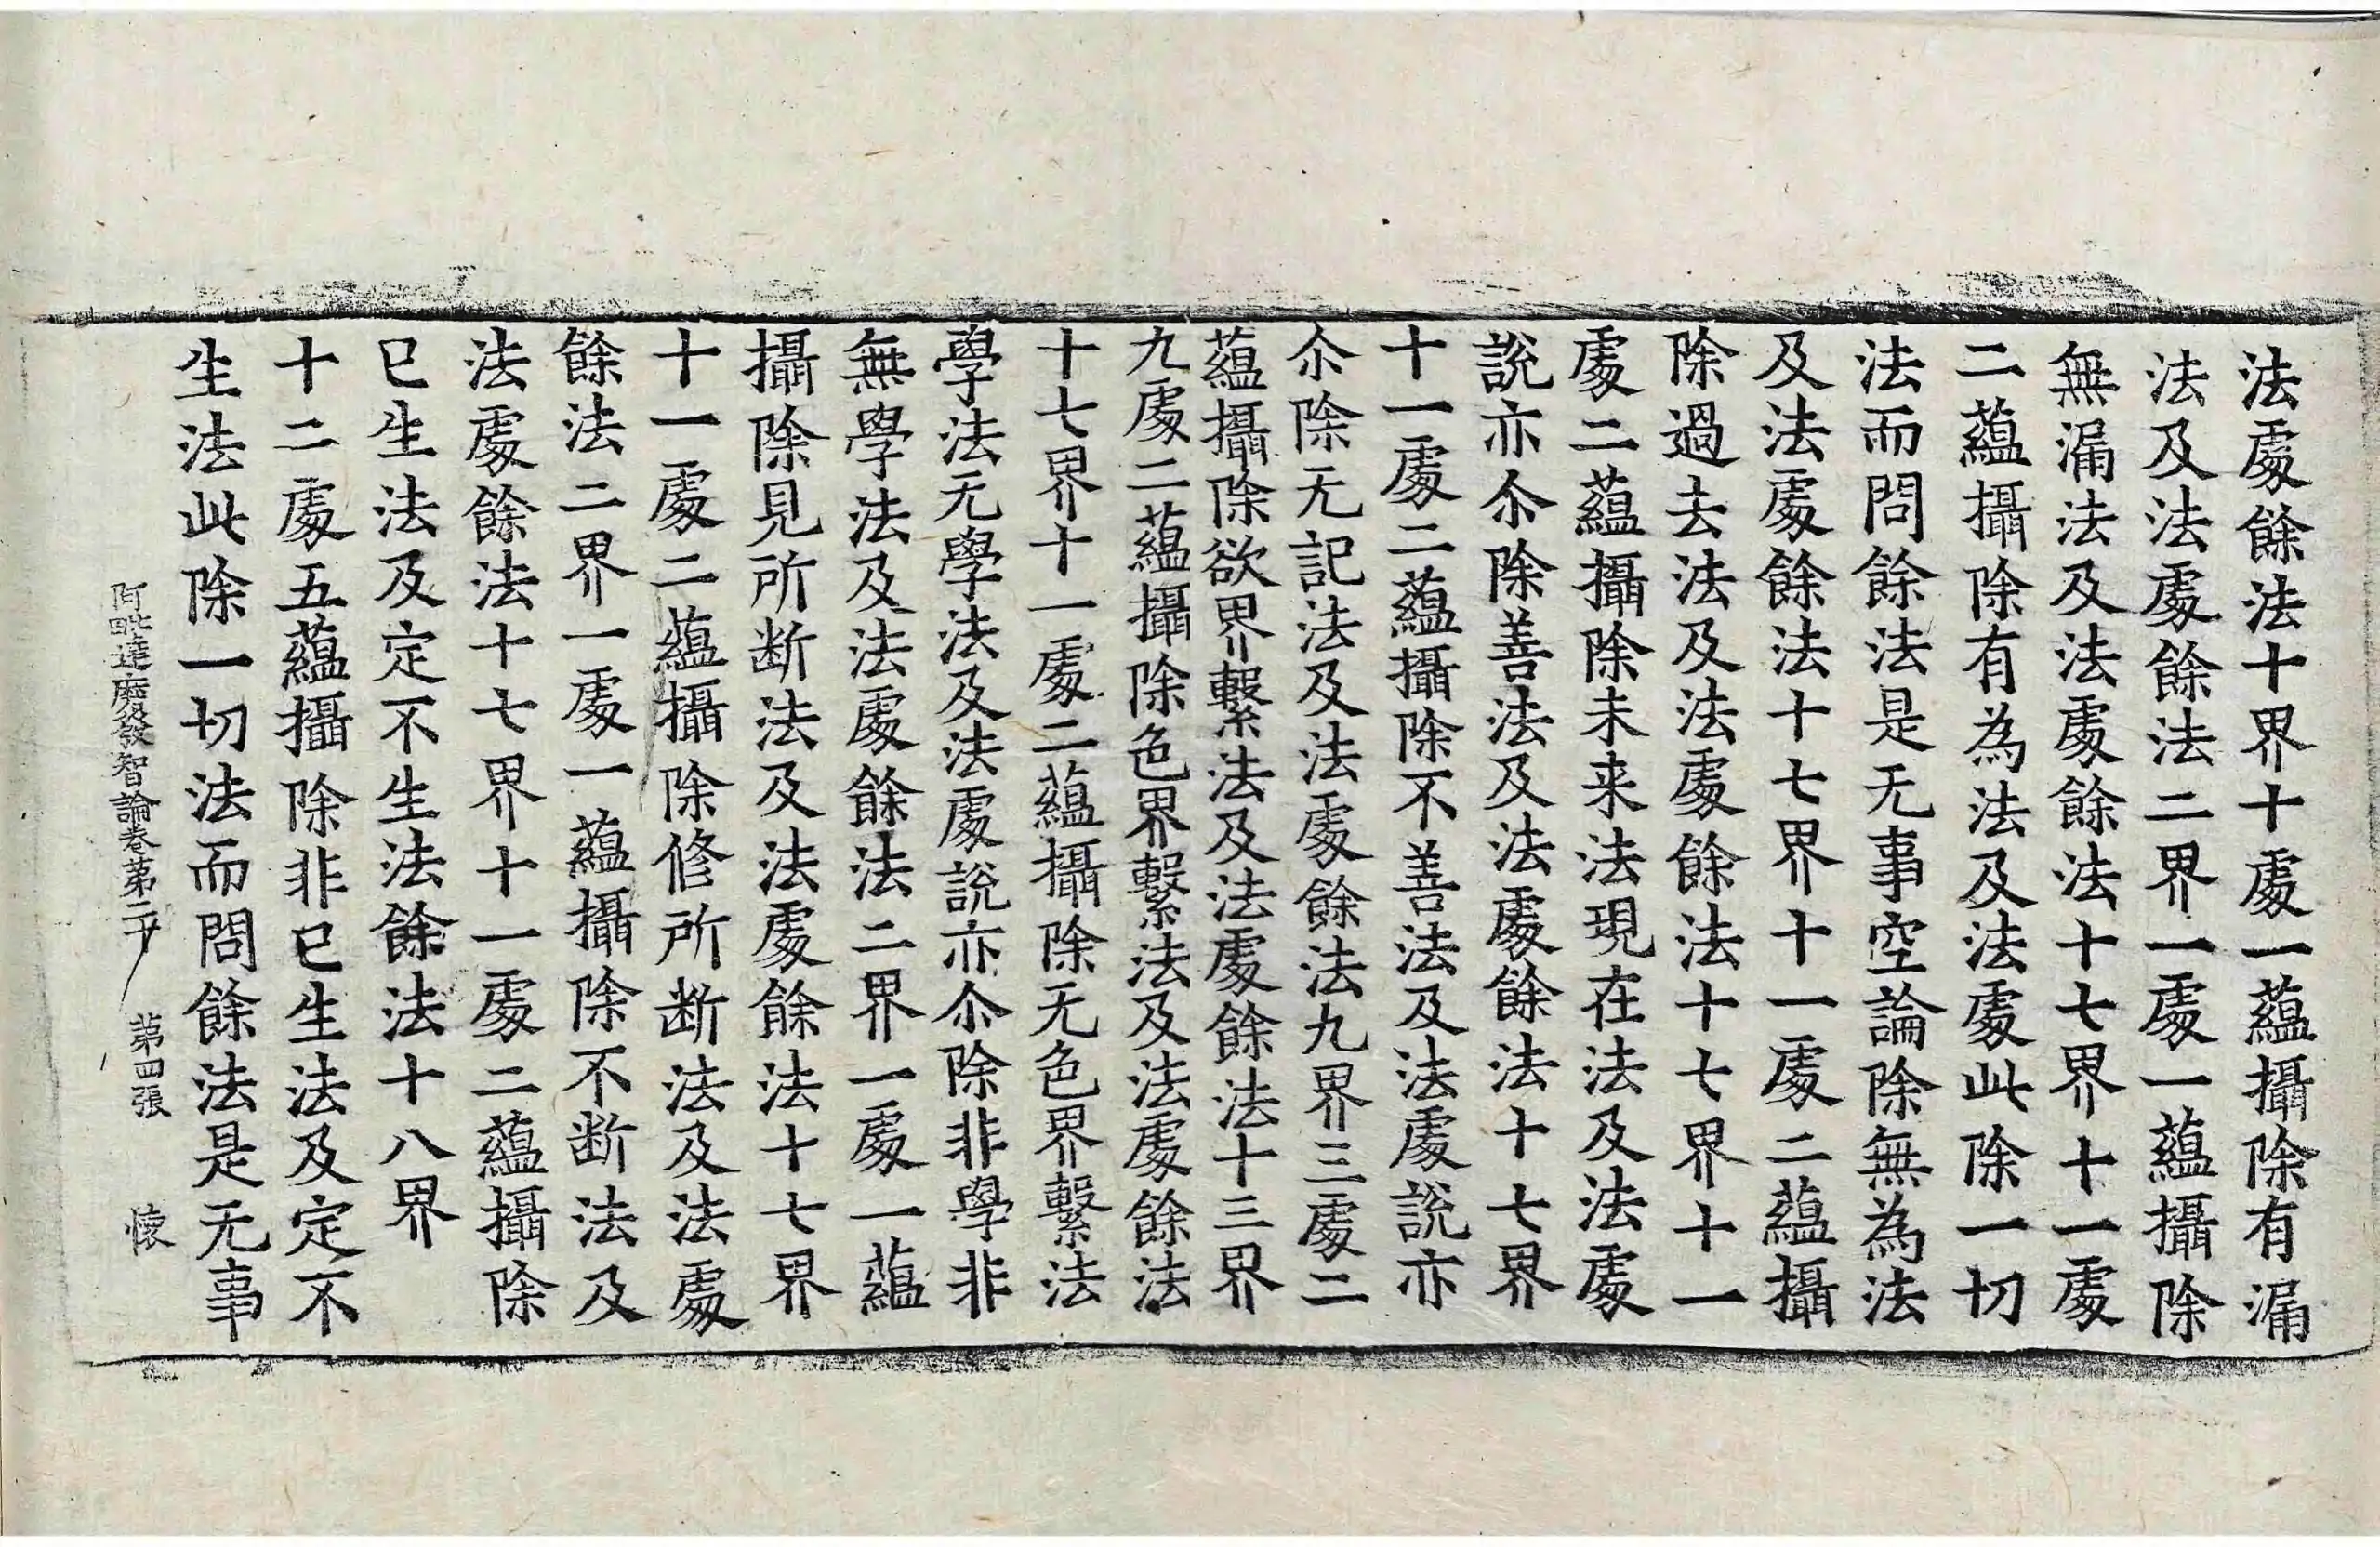 法處餘法十界十處一蘊攝除有漏
法及法處餘法二界一處一蘊攝除
無漏法及法處餘法十七界十一處
二蘊攝除有為法及法處此除一切
法而問餘法是无事空論除無為法
及法處餘法十七界十一處二蘊攝
除過去法及法處餘法十七界十一
處二蘊攝除未来法現在法及法處
說亦尒除善法及法處餘法十七界
十一處二蘊攝除不善法及法處說亦
尒除无記法及法處餘法九界三處二
蘊攝除欲界繫法及法處餘法十三界
九處二蘊攝除色界繫法及法處餘法
十七界十一處二蘊攝除无色界繫法
學法无學法及法處說亦尒除非學非
無學法及法處餘法二界一處一蘊
攝除見所断法及法處餘法十七界
十一處二蘊攝除修所断法及法處
餘法二界一處一蘊攝除不断法及
法處餘法十七界十一處二蘊攝除
已生法及定不生法餘法十八界
十二處五蘊攝除非已生法及定不
生法此除一切法而問餘法是无事
阿毗達磨發智論卷第二十 第四張 懐